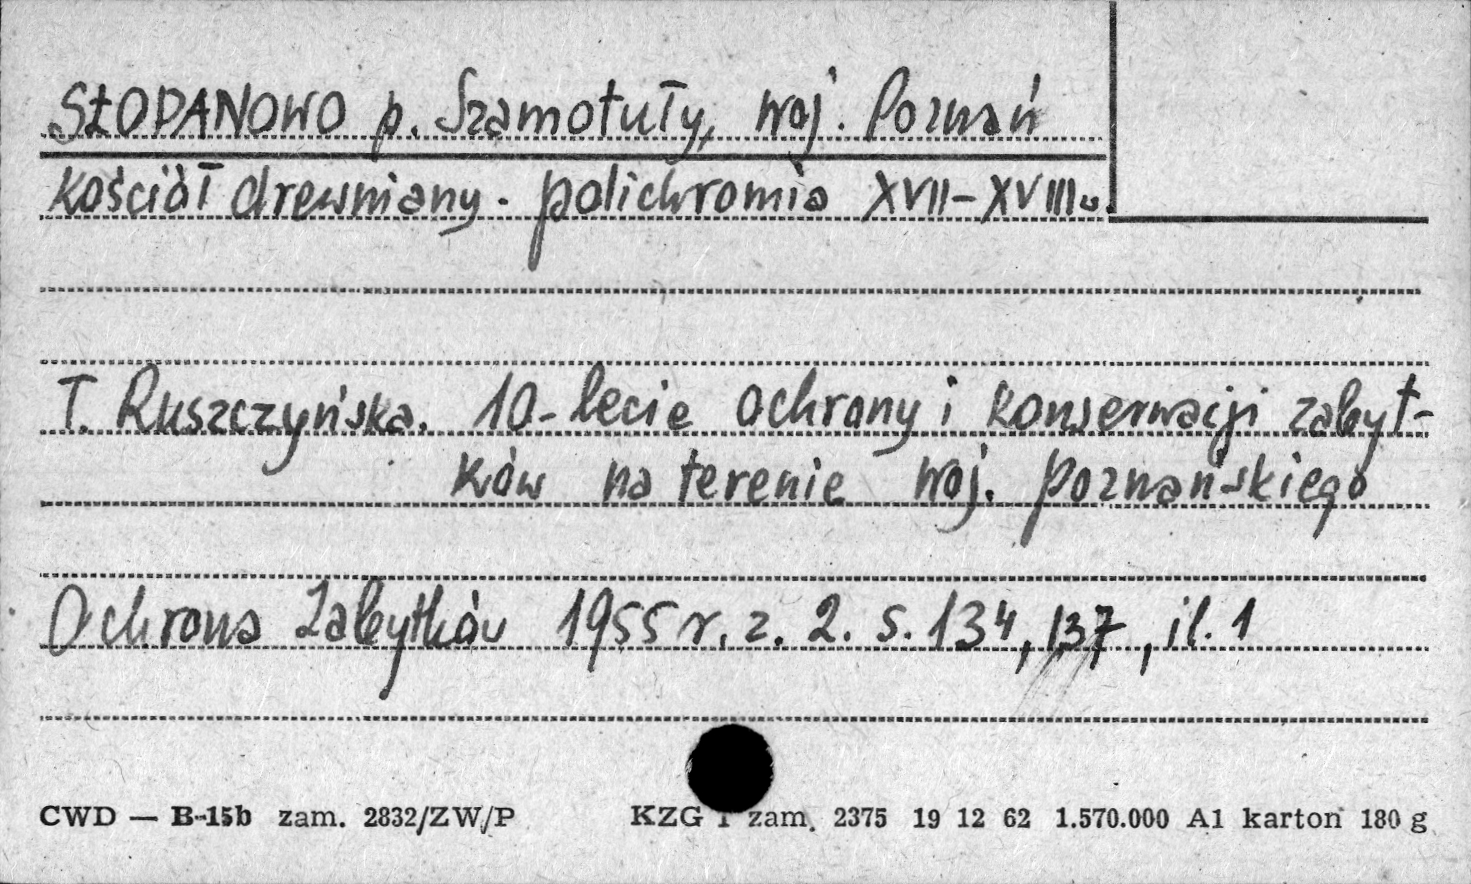 SŁOPANOWO p. Szamotuły, woj. Poznań
Kościół drewniany. polichromia XVII-XVIII w.
T. Ruszczyńska. 10-lecie ochrony i konserwacji zabyt-
ków na terenie woj. poznańskiego
Ochrona Zabytków 1955 r. z. 2. s. 134, 137, il. 1
CWD — B-15b zam. 2832/ZW/P KZG 1 zam. 2375 19 12 62 1.570.000 A1 karton 180 g